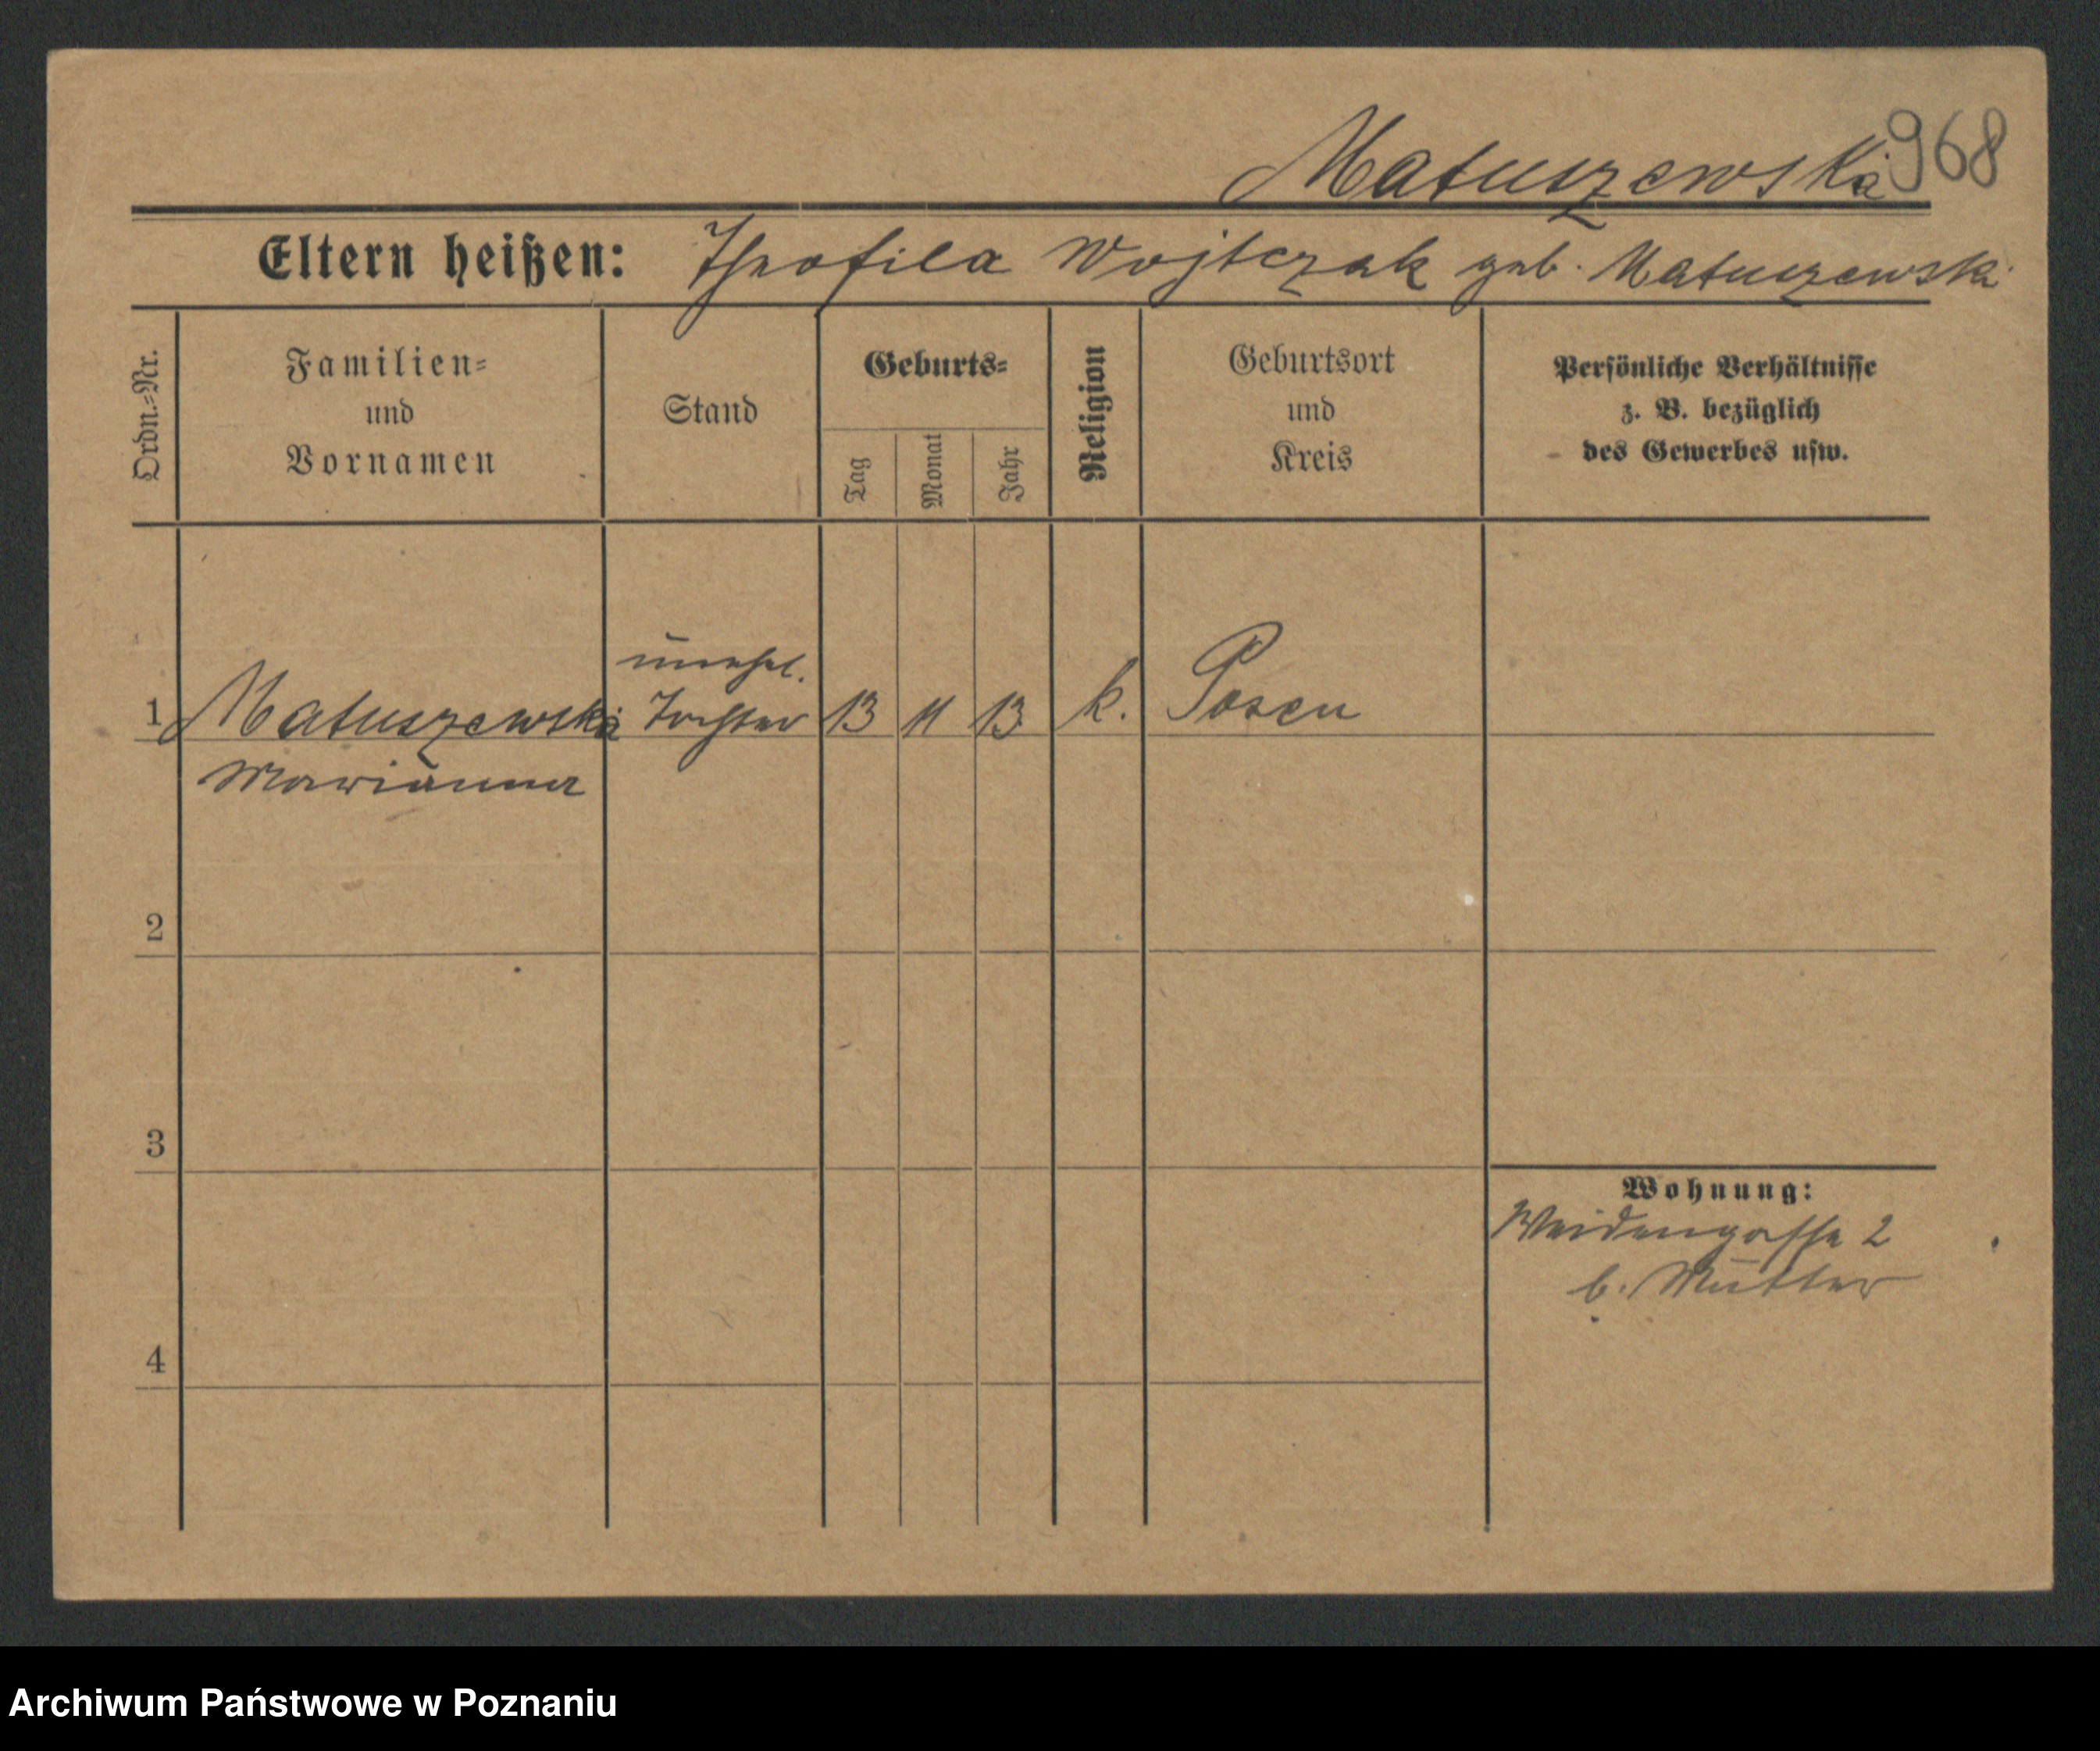 Matuszewska
968
Eltern heißen: Theofila Wojtczak geb. Matuszewski
Ordn.-Nr.
Familien-
und
Vornamen
Stand
Geburts-
Tag
Monat
Jahr
Religion
Geburtsort
und
Kreis
Persönliche Verhältnisse
z. B. bezüglich
des Gewerbes usw.
unehel.
1 Matuszewska Tochter 13 11 13 k. Posen
Marianna
2
3
Wohnung:
Weidengasse 2
b. Mutter
4
Archiwum Państwowe w Poznaniu